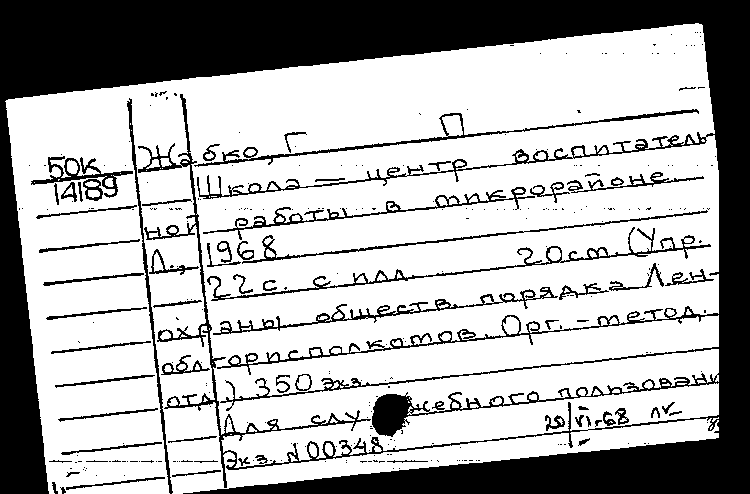 50К
14189
Жабко, Г П
Школа — центр воспитатель-
ной работы в микрорайоне.
Л., 1968.
22 с. с илл. 20 см. (Упр.
охраны обществ. порядка Лен-
облгорисполкомов. Орг.-метод.
отд.). 350 экз.
Для служебного пользовани
Экз. №00348.
20/VI-68